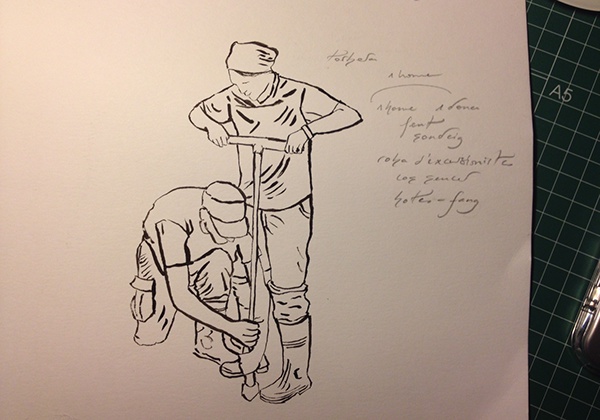 Portada
1 home
1 home 1 dona
fent
sondeig
roba d'excursionista
cos sencer
botes - fang
A5